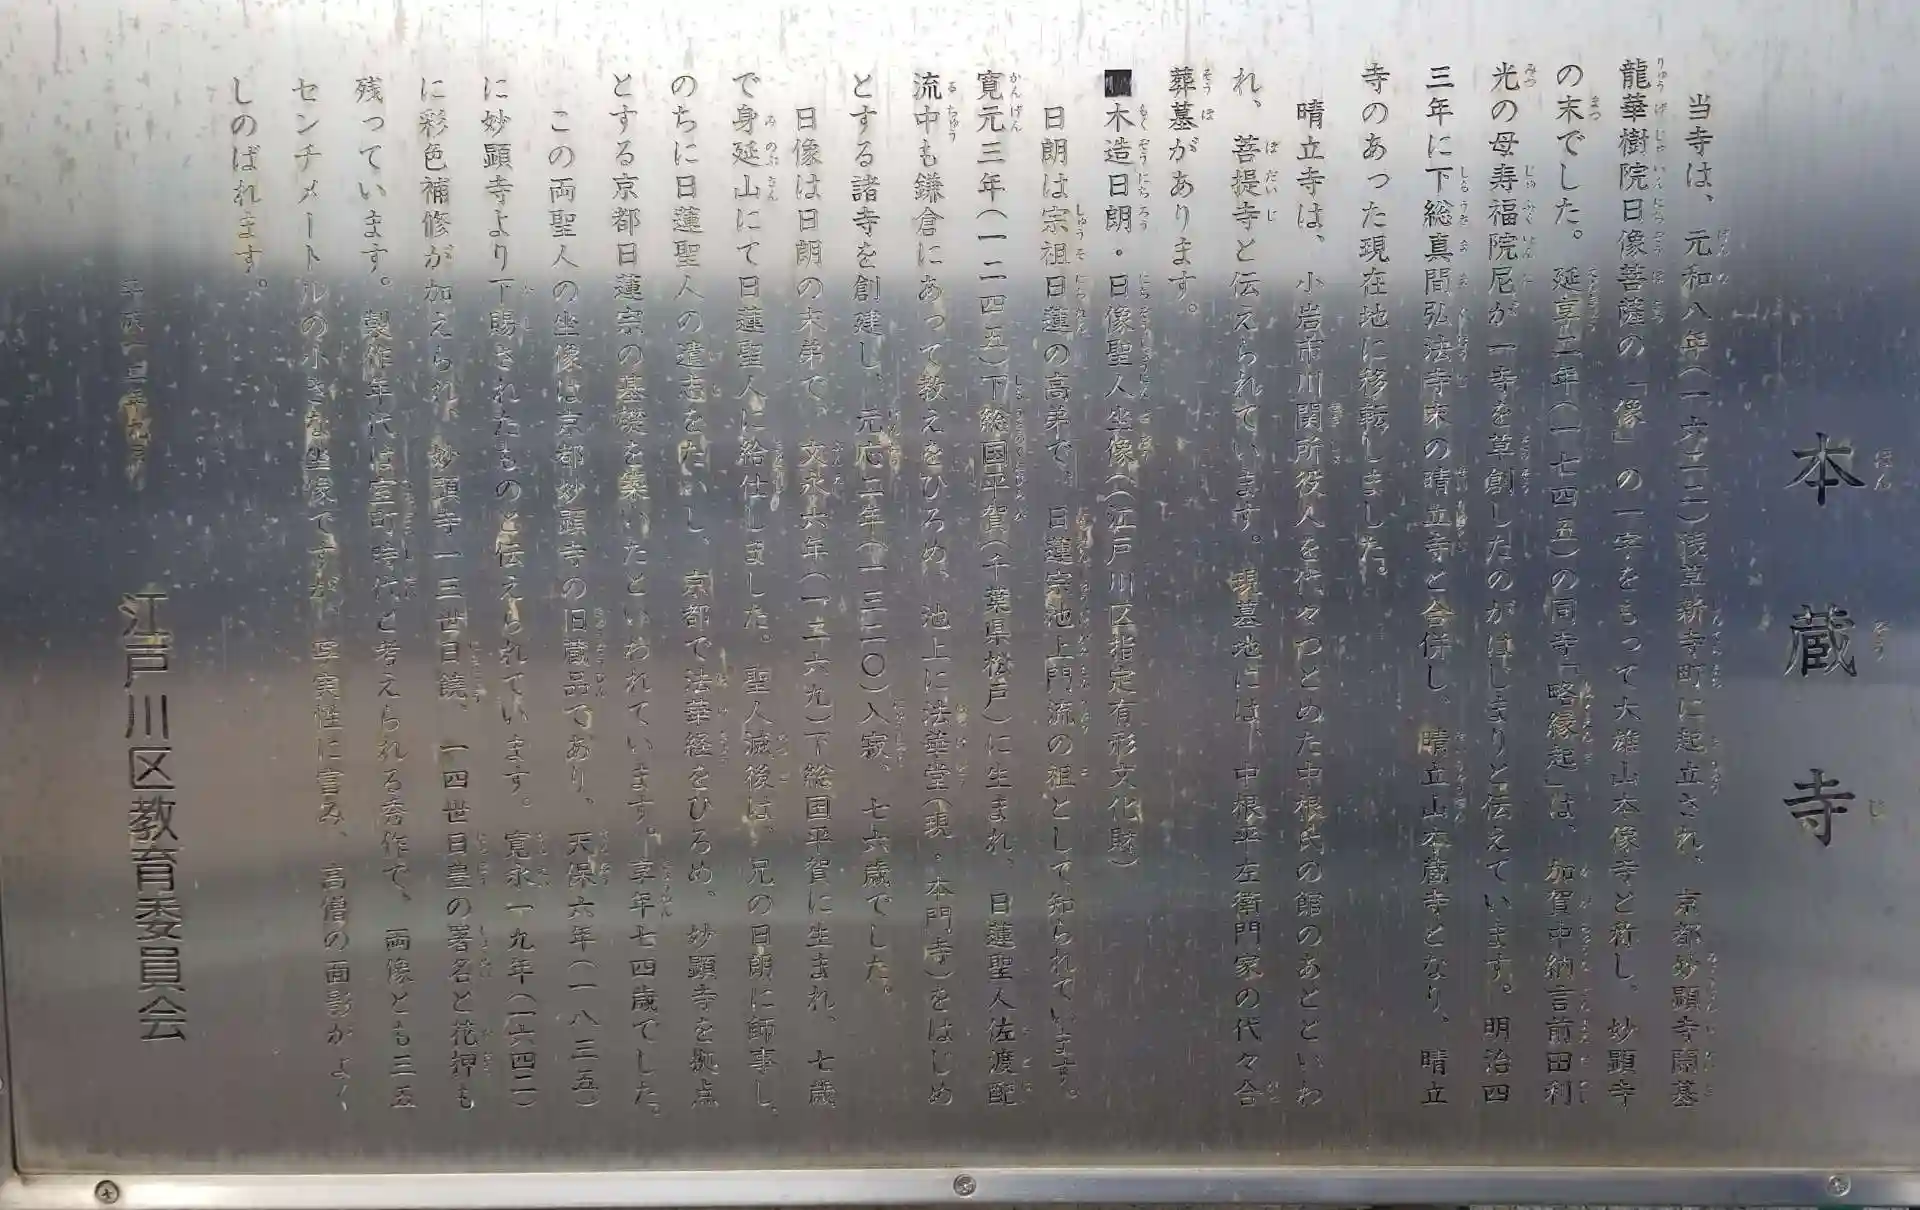 本蔵寺
当寺は、元和八年(一六二二)浅草新寺町に起立され、京都妙顕寺開基
龍華樹院日像菩薩の「像」の一字をもって大雄山本像寺と称し、妙顕寺
の末でした。延享二年(一七四五)の同寺「略縁起」は、加賀中納言前田利
光の母寿福院尼が一寺を草創したのがはじまりと伝えています。明治四
三年に下総真間弘法寺末の晴立寺と合併し、晴立山本蔵寺となり、晴立
寺のあった現在地に移転しました。
晴立寺は、小岩市川関所役人を代々つとめた中根氏の館のあとといわ
れ、菩提寺と伝えられています。現墓地には、中根平左衛門家の代々合
葬墓があります。
■木造日朗・日像聖人坐像((江戸川区指定有形文化財)
日朗は宗祖日蓮の高弟で、日蓮宗池上門流の祖として知られています。
寛元三年(一二四五)下総国平賀(千葉県松戸)に生まれ、日蓮聖人佐渡配
流中も鎌倉にあって教えをひろめ、池上に法華堂(現・本門寺)をはじめ
とする諸寺を創建し、元応二年(一三二〇)入寂。七六歳でした。
日像は日朗の末弟で、文永六年(一二六九)下総国平賀に生まれ、七歳
で身延山にて日蓮聖人に給仕しました。聖人滅後は、兄の日朗に師事し、
のちに日蓮聖人の遺志をたいし、京都で法華経をひろめ、妙顕寺を拠点
とする京都日蓮宗の基礎を築いたといわれています。享年七四歳でした。
この両聖人の坐像は京都妙顕寺の旧蔵品であり、天保六年(一八三五)
に妙顕寺より下賜されたものと伝えられています。寛永一九年(一六四二)
に彩色補修が加えられ、妙顕寺一三世日饒、一四世日豊の署名と花押も
残っています。製作年代は室町時代と考えられる秀作で、両像とも三五
センチメートルの小さな坐像ですが、写実性に富み、高僧の面影がよく
しのばれます。
江戸川区教育委員会